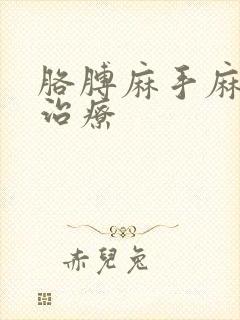 胳膊麻手麻
治療
赤兒兔